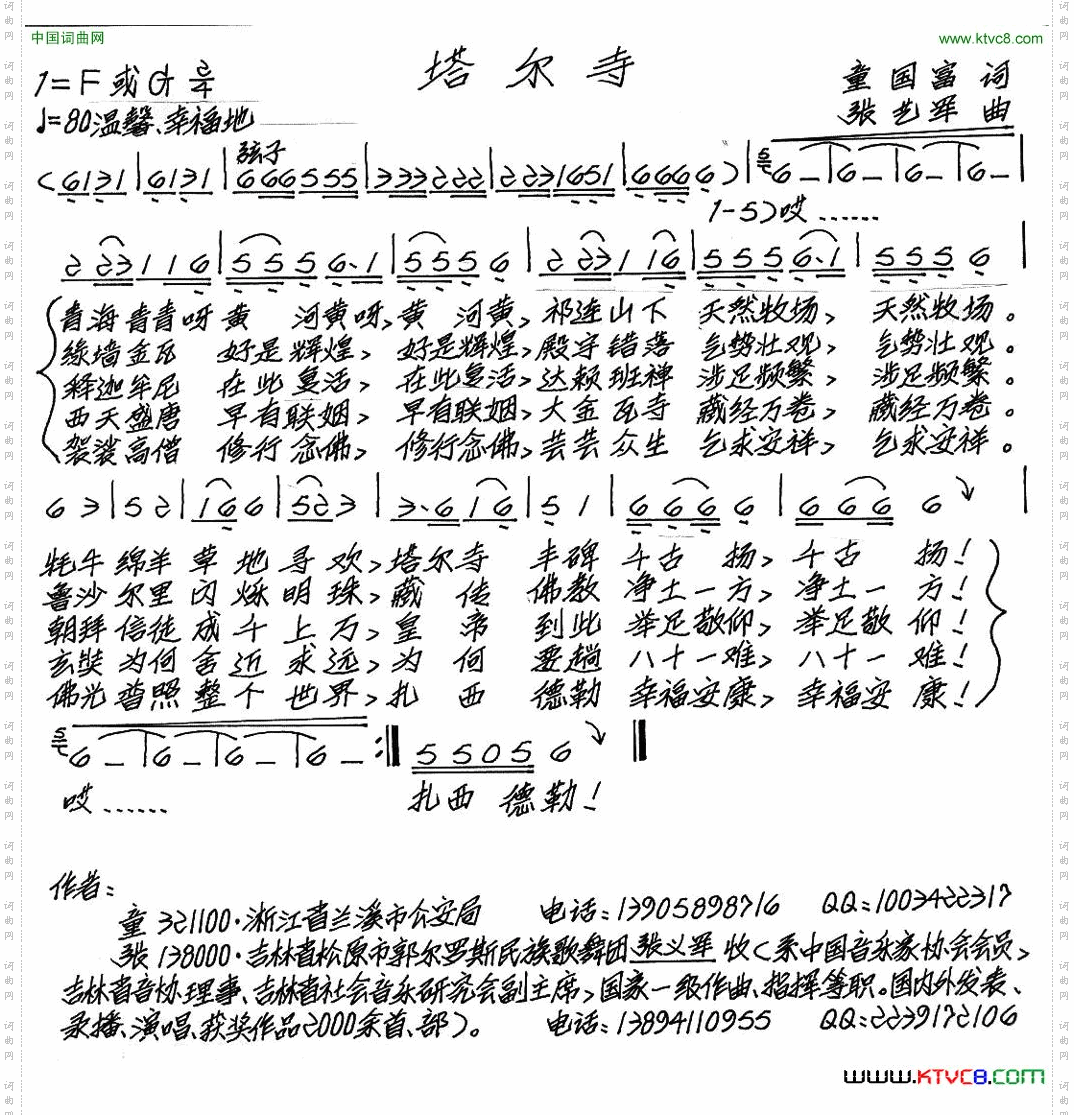 中国词曲网 www.ktvc8.com
塔尔寺
1=F 或 G 2/4 童国富 词
♩=80 温馨、幸福地 张艺军 曲
弦子
(6131|6131|666555|333222|2231651|6666)|6 —|6 —|6 —|6 —|
1-5)哎……
2 23116|5556·1|5556|223116|5556·1|5556|
青海青青呀黄 河黄呀,黄 河黄,祁连山下 天然牧场, 天然牧场。
绿墙金瓦 好是辉煌, 好是辉煌,殿宇错落 气势壮观, 气势壮观。
释迦牟尼 在此复活, 在此复活,达赖班禅 涉足频繁, 涉足频繁。
西天盛唐 早有联姻, 早有联姻,大金瓦寺 藏经万卷, 藏经万卷。
袈裟高僧 修行念佛, 修行念佛,芸芸众生 乞求安祥, 乞求安祥。
6 3|5 2|1 6 6|5 2 3|3·6 1 6|5 1|6 6 6 6|6 6 6 6|
牦牛绵羊草地寻欢,塔尔寺 丰碑 千古 扬, 千古 扬!
鲁沙尔里闪烁明珠,藏 传 佛教 净土一方,净土一 方!
朝拜信徒成千上万,皇 帝 到此 举足敬仰, 举足敬 仰!
玄奘为何舍近求远,为 何 要趟 八十一难, 八十一 难!
佛光普照整个世界,扎 西 德勒 幸福安康, 幸福安 康!
6 —|6 —|6 —|6 —:‖5 5 0 5 6‖
哎…… 扎西 德勒!
作者:
童 321100·浙江省兰溪市公安局 电话:13905898716 QQ:1003422317
张 138000·吉林省松原市郭尔罗斯民族歌舞团张义军 收(系中国音乐家协会会员,
吉林省音协理事、吉林省社会音乐研究会副主席,国家一级作曲、指挥等职。国内外发表、
录播、演唱、获奖作品2000余首、部)。 电话:13894110955 QQ:2239172106
www.KTVC8.com